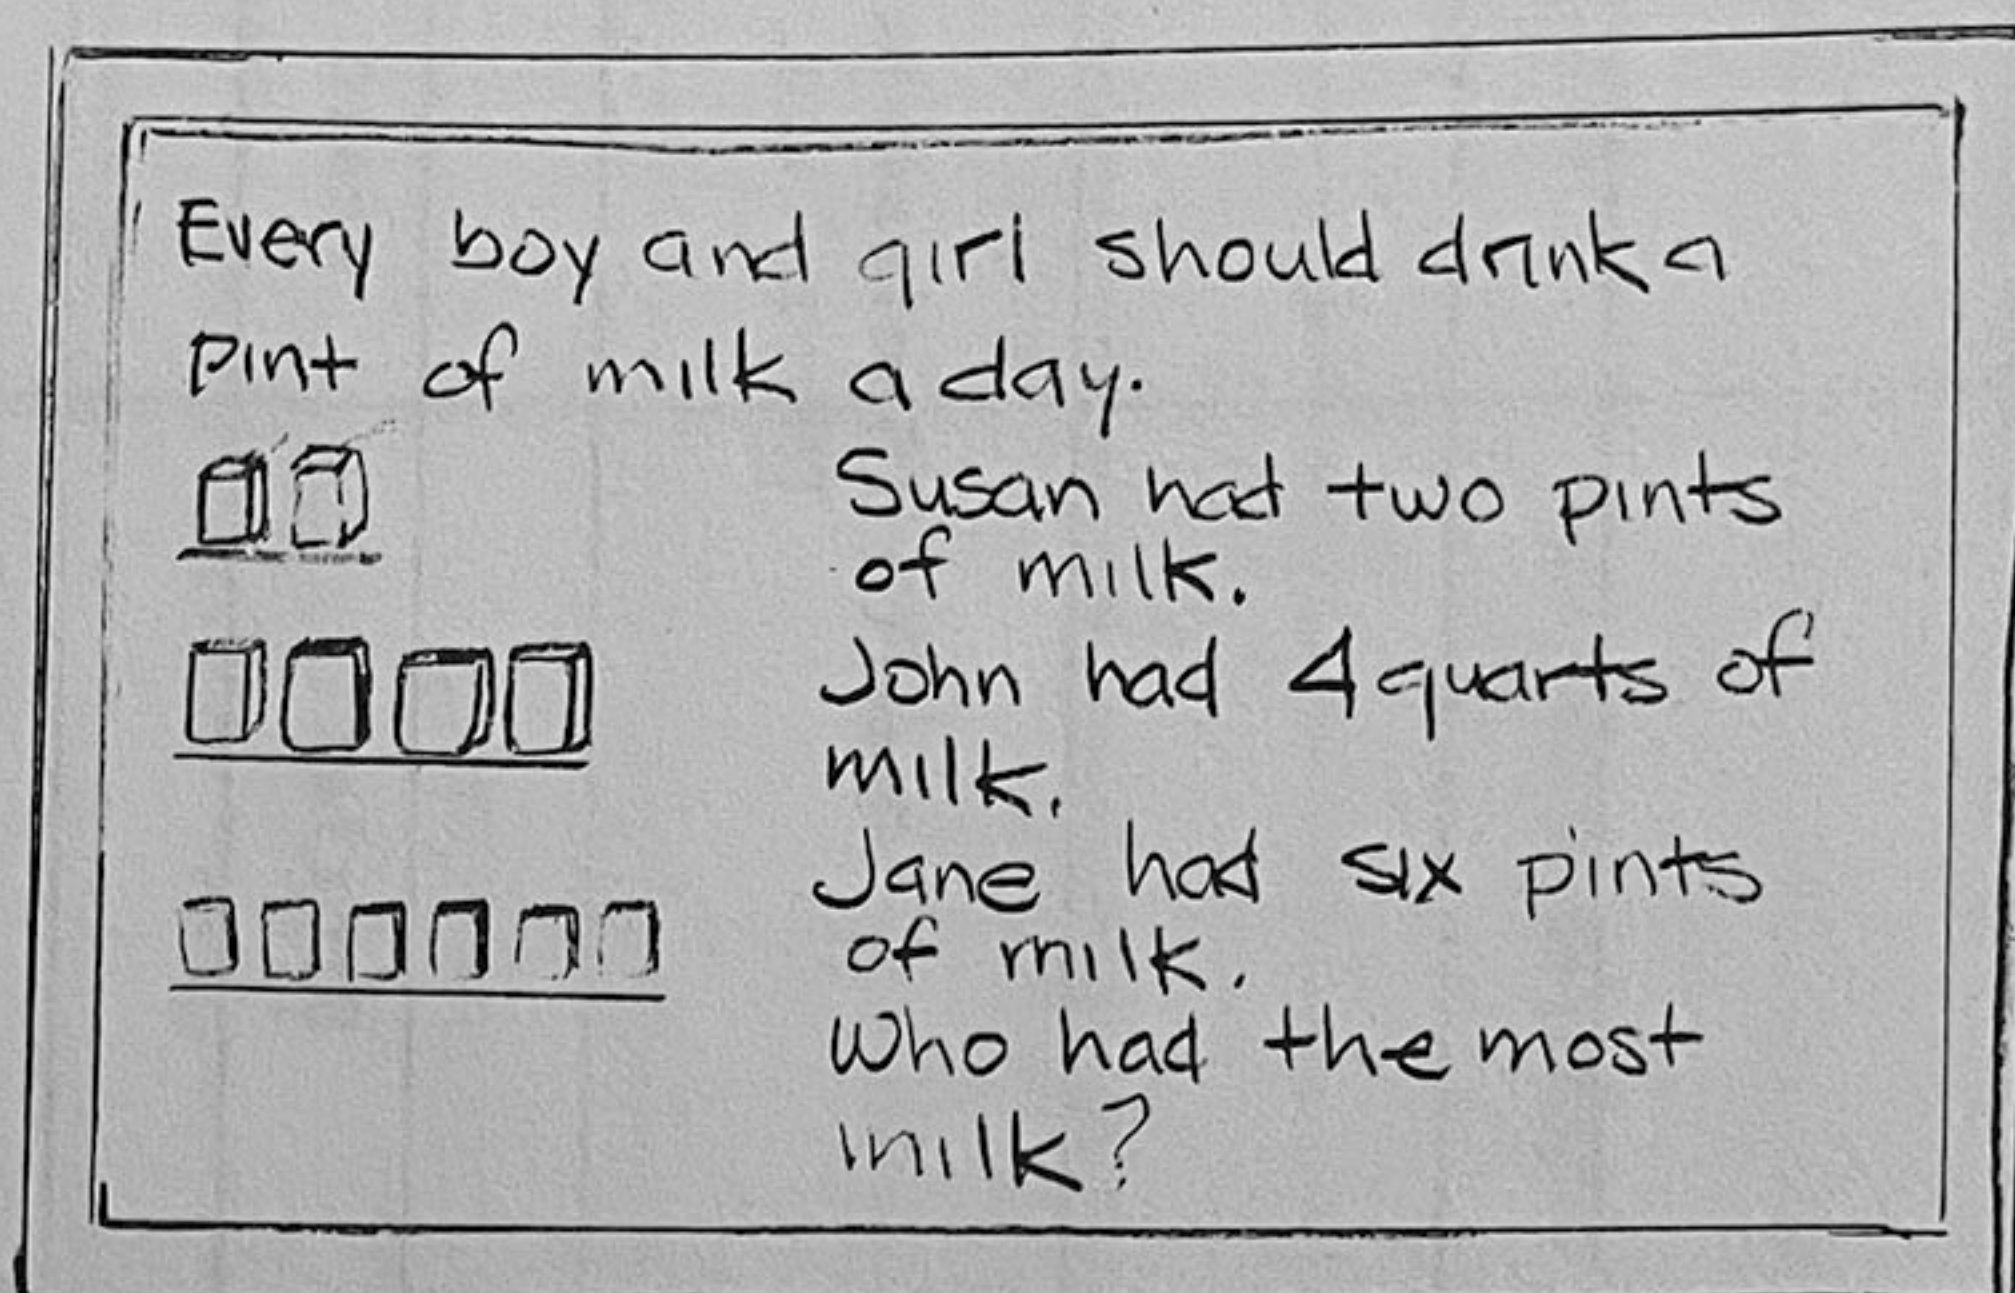 Every boy and girl should drink a
pint of milk a day.
Susan had two pints
of milk.
John had 4 quarts of
milk.
Jane had six pints
of milk.
Who had the most
milk?